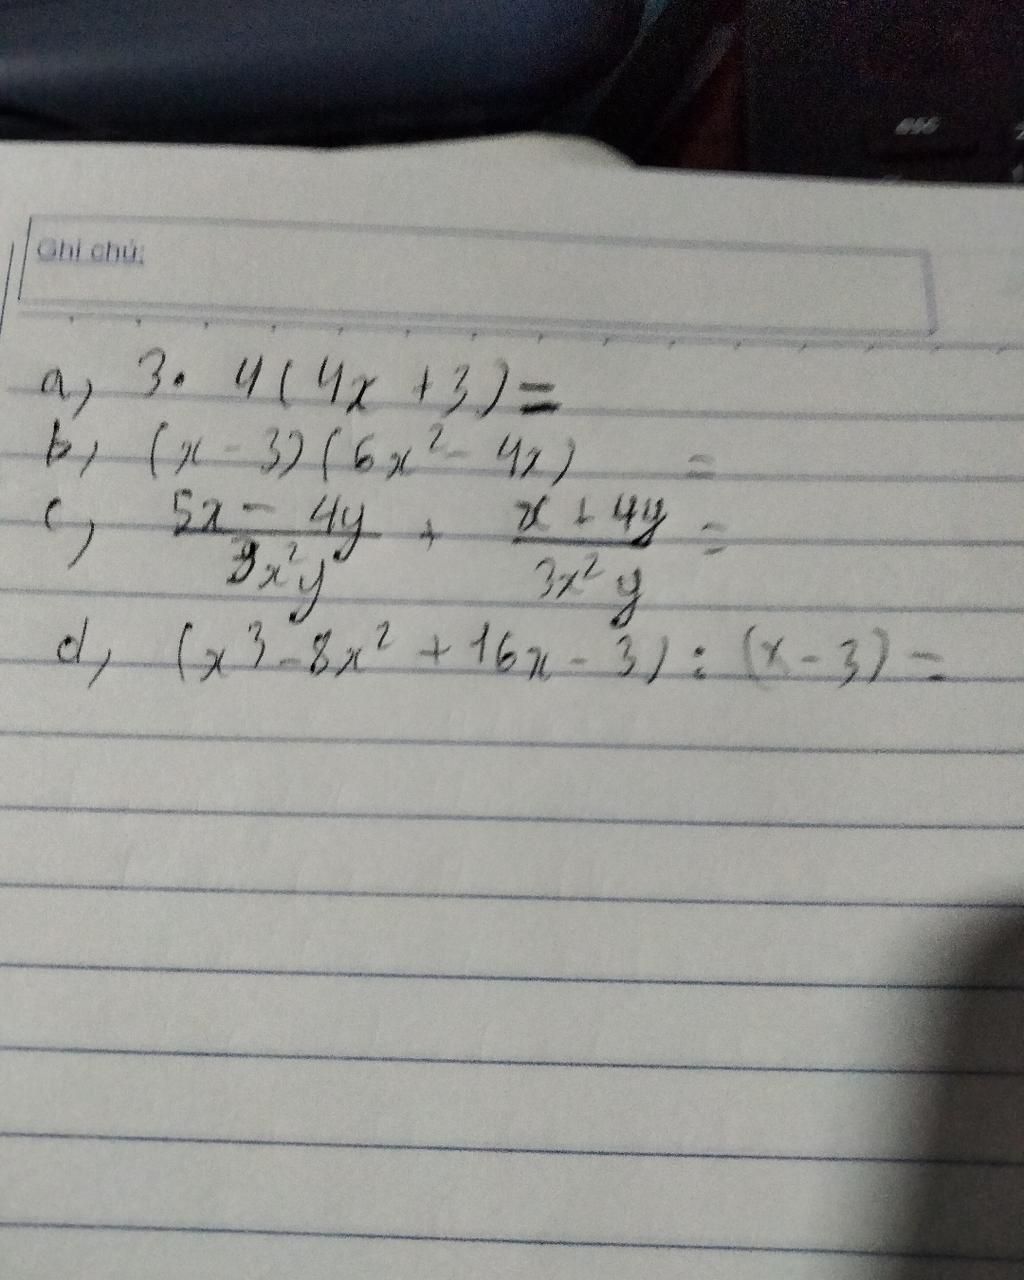 Ghi chú:
a, 3. 4(4x + 3) =
b, (x - 3)(6x² - 4x) =
c, (5x - 4y)/(9x²y) + (x + 4y)/(3x²y) =
d, (x³ - 8x² + 16x - 3) : (x - 3) =